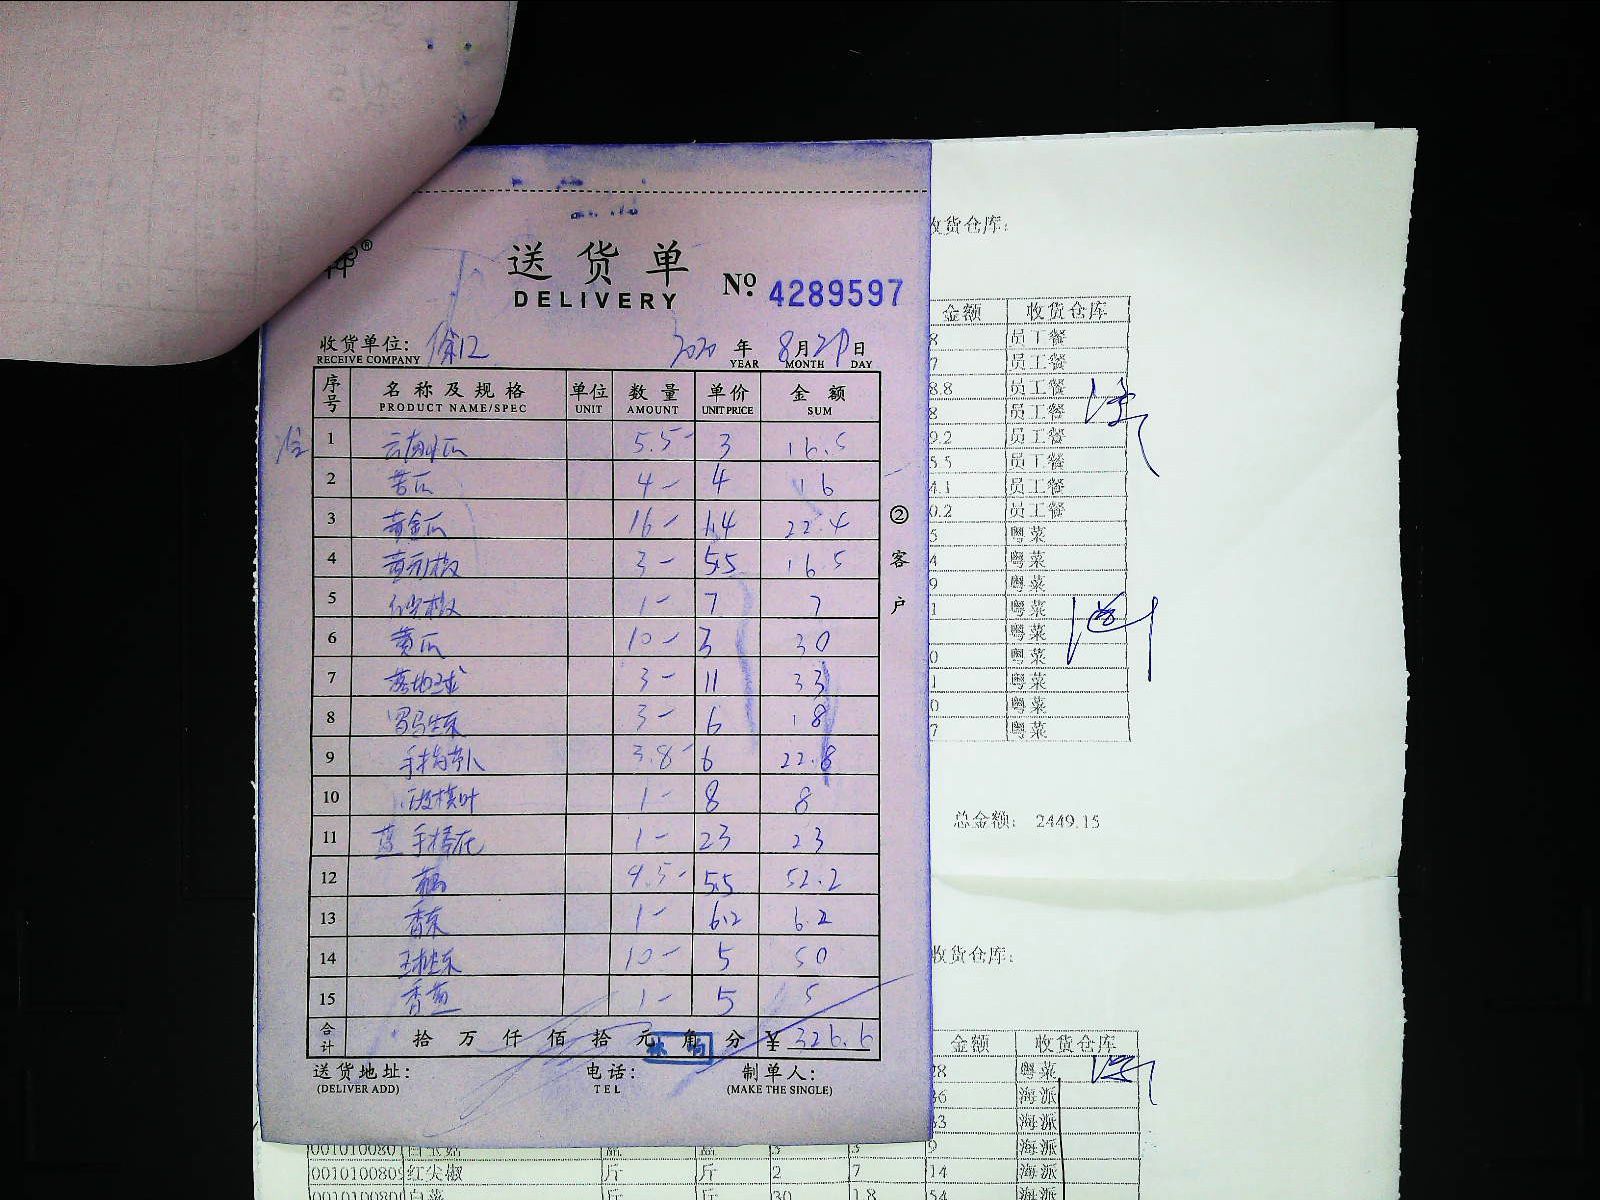 送货单
DELIVERY
№ 4289597
收货单位: 徐汇 2020 年 8月21日
RECEIVE COMPANY YEAR MONTH DAY
序号 名称及规格 单位 数量 单价 金额
PRODUCT NAME/SPEC UNIT AMOUNT UNIT PRICE SUM
1 云南小瓜 5.5- 3 16.5
2 苦瓜 4- 4 16
3 黄金瓜 16- 1.4 22.4
4 黄元椒 3- 5.5 16.5
5 1- 7 7
6 黄瓜 10- 3 30
7 落地球 3- 11 33
8 罗马生菜 3- 6 18
9 手指萝卜 3.8- 6 22.8
10 1- 8 8
11 1- 23 23
12 9.5- 5.5 52.2
13 香菜 1- 6.2 6.2
14 10- 5 50
15 香葱 1- 5 5
合计 拾万仟佰拾元角分 ¥326.6
送货地址: 电话: 制单人:
(DELIVER ADD) TEL (MAKE THE SINGLE)
②客户
收货仓库:
金额 收货仓库
8 员工餐
7 员工餐
8.8 员工餐
8 员工餐
9.2 员工餐
5.5 员工餐
4.1 员工餐
0.2 员工餐
5 粤菜
4 粤菜
9 粤菜
1 粤菜
粤菜
0 粤菜
1 粤菜
0 粤菜
7 粤菜
总金额: 2449.15
收货仓库:
金额 收货仓库
28 粤菜
36 海派
33 海派
9 海派
红尖椒 斤 斤 2 7 14 海派
白菜 斤 斤 30 1.8 54 海派